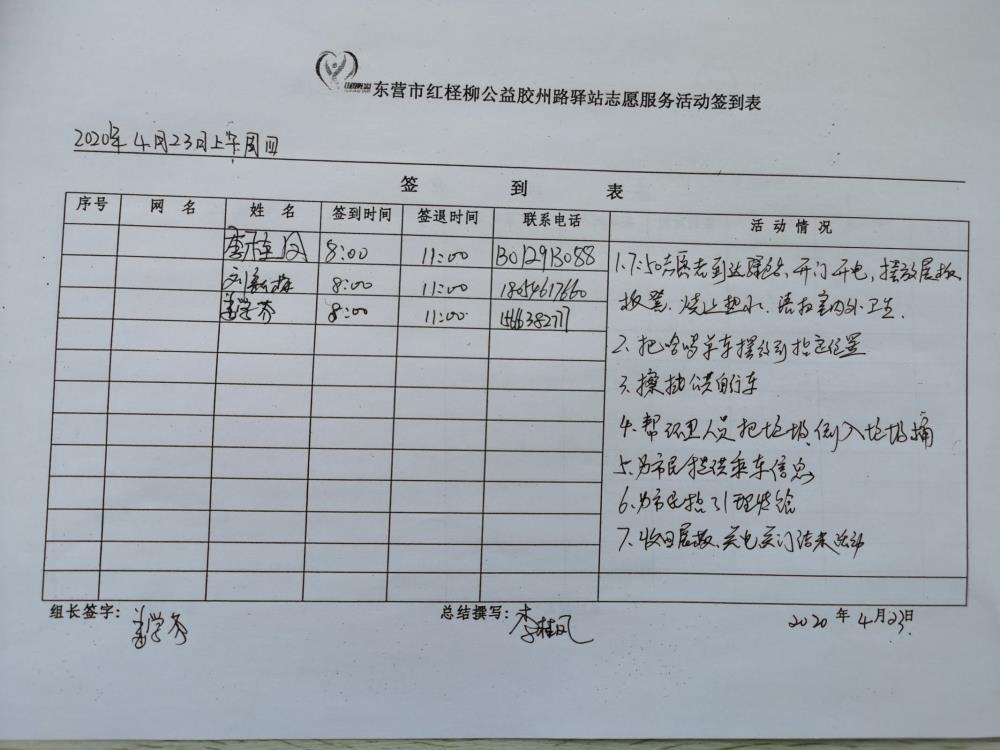 东营市红柽柳公益胶州路驿站志愿服务活动签到表
2020年4月23日上午周四
签 到 表
序号 网 名 姓 名 签到时间 签退时间 联系电话 活 动 情 况
李桂凤 8:00 11:00 13012913088
8:00 11:00 18054617660
姜学芬 8:00 11:00
1.7:50志愿者到达驿站、开门开电,摆放展板
烧上热水、清扫室内外卫生.
2、把哈啰单车摆放到指定位置
3、擦拭公共自行车
4、帮环卫人员把垃圾倒入垃圾桶
5、为市民提供乘车信息
6、为市民指引理发馆
7、收回展板、关电关门结束活动
组长签字: 姜学芬 总结撰写: 李桂凤 2020年4月23日